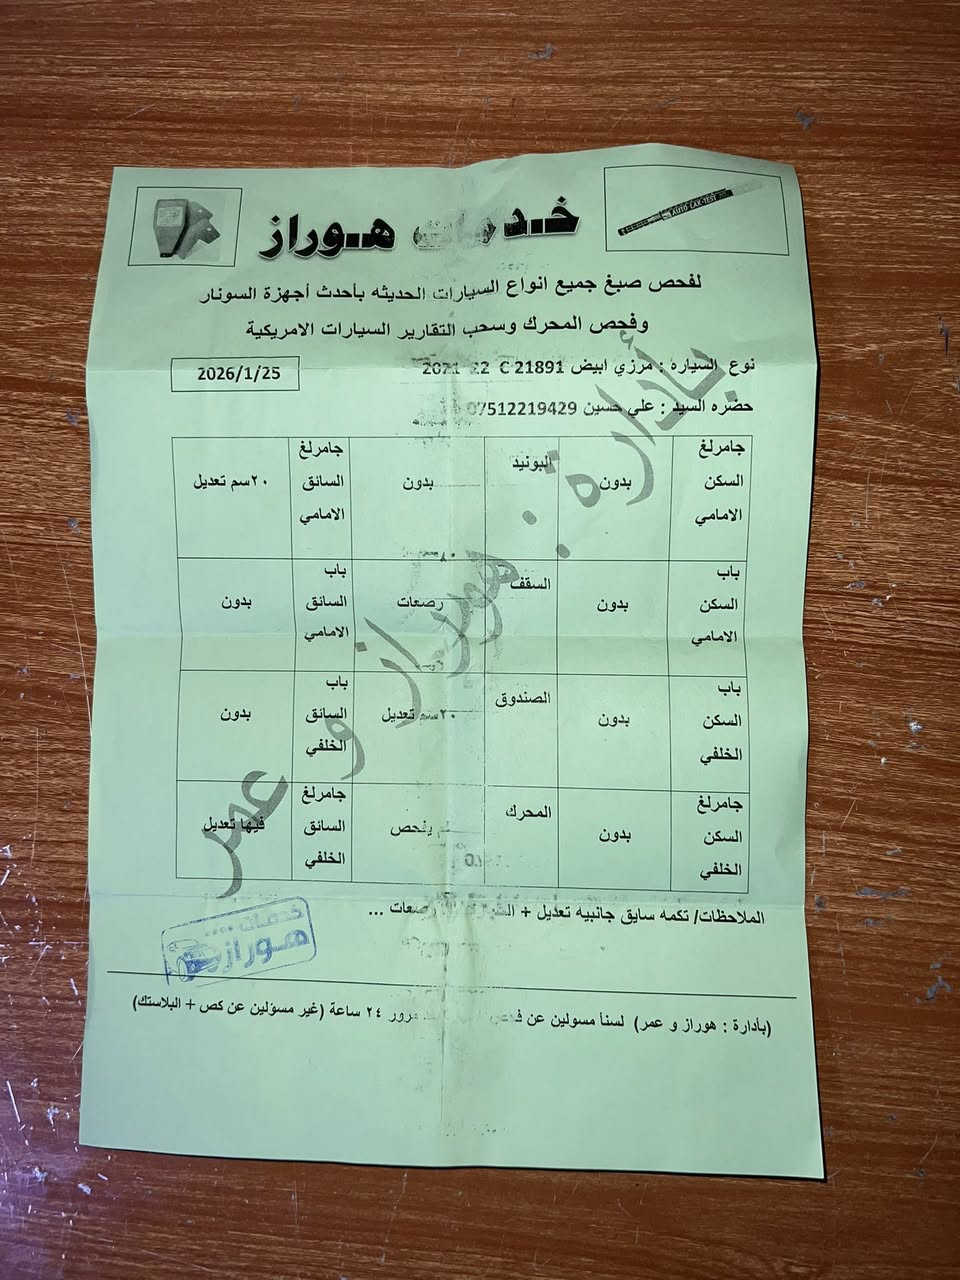 خدمات هوراز
AUTO LAK-TEST
لفحص صبغ جميع انواع السيارات الحديثه بأحدث أجهزة السونار
وفحص المحرك وسحب التقارير السيارات الامريكية
نوع السياره : مرزي ابيض 21891 C 22
2026/1/25
حضره السيد : علي حسين 07512219429
جامرلغ السكن الامامي
بدون
البونيد
بدون
جامرلغ السائق الامامي
٢٠سم تعديل
باب السكن الامامي
بدون
السقف
رصعات
باب السائق الامامي
بدون
باب السكن الخلفي
بدون
الصندوق
٢٠سم تعديل
باب السائق الخلفي
بدون
جامرلغ السكن الخلفي
بدون
المحرك
يفحص
جامرلغ السائق الخلفي
فيها تعديل
بأدارة : هوراز و عمر
الملاحظات/ تكمه سايق جانبيه تعديل + رصعات ...
خدمات ...
هوراز
(بأدارة : هوراز و عمر) لسنأ مسولين عن مرور ٢٤ ساعة (غير مسولين عن كص + البلاستك)